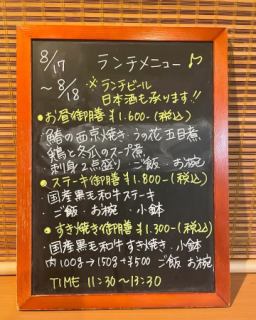 8/17 ランチメニュー♪
~8/18 ※ランチビール
日本酒も承ります!!
●お昼御膳¥1.600-(税込)
鰆の西京焼き・うの花五目煮
鶏と冬瓜のスープ煮
刺身2点盛り・ご飯・お椀
●ステーキ御膳¥1.800-(税込)
・国産黒毛和牛ステーキ
・ご飯・お椀・小鉢
●すき焼き御膳¥1.300-(税込)
・国産黒毛和牛すき焼き・小鉢
肉100g→150g+¥500 ご飯 お椀
TIME 11:30~13:30